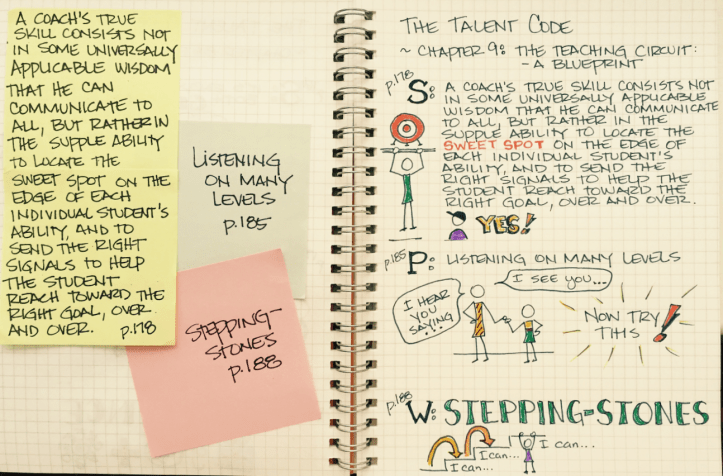 A COACH'S TRUE
SKILL CONSISTS NOT
IN SOME UNIVERSALLY
APPLICABLE WISDOM
THAT HE CAN
COMMUNICATE TO
ALL, BUT RATHER IN
THE SUPPLE ABILITY
TO LOCATE THE
SWEET SPOT ON THE
EDGE OF EACH
INDIVIDUAL STUDENT'S
ABILITY, AND TO
SEND THE RIGHT
SIGNALS TO HELP
THE STUDENT
REACH TOWARD THE
RIGHT GOAL, OVER
AND OVER. p.178
LISTENING
ON MANY
LEVELS
p.185
STEPPING-
STONES
p.188
THE TALENT CODE
~ CHAPTER 9: THE TEACHING CIRCUIT:
- A BLUEPRINT
p.178
S: A COACH'S TRUE SKILL CONSISTS NOT
IN SOME UNIVERSALLY APPLICABLE
WISDOM THAT HE CAN COMMUNICATE
TO ALL, BUT RATHER IN THE
SUPPLE ABILITY TO LOCATE THE
SWEET SPOT ON THE EDGE OF
EACH INDIVIDUAL STUDENT'S
ABILITY, AND TO SEND THE
RIGHT SIGNALS TO HELP THE
STUDENT REACH TOWARD THE
RIGHT GOAL, OVER AND OVER.
YES!
p.185
P: LISTENING ON MANY LEVELS
I SEE YOU...
I HEAR
YOU
SAYING
...
NOW TRY
THIS !
p.188
W: STEPPING-STONES
I can...
I can...
I can...